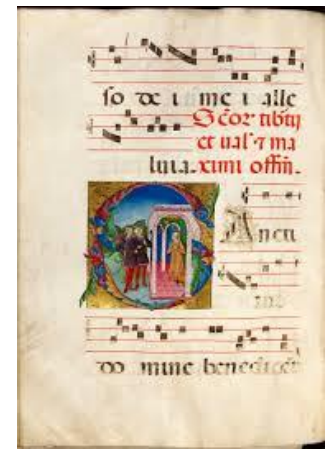 so de i me i alle
Scor tibtij
et ual. ⁊ ma
luia. ximi offm̄.
Ancti
do mine benedicēt